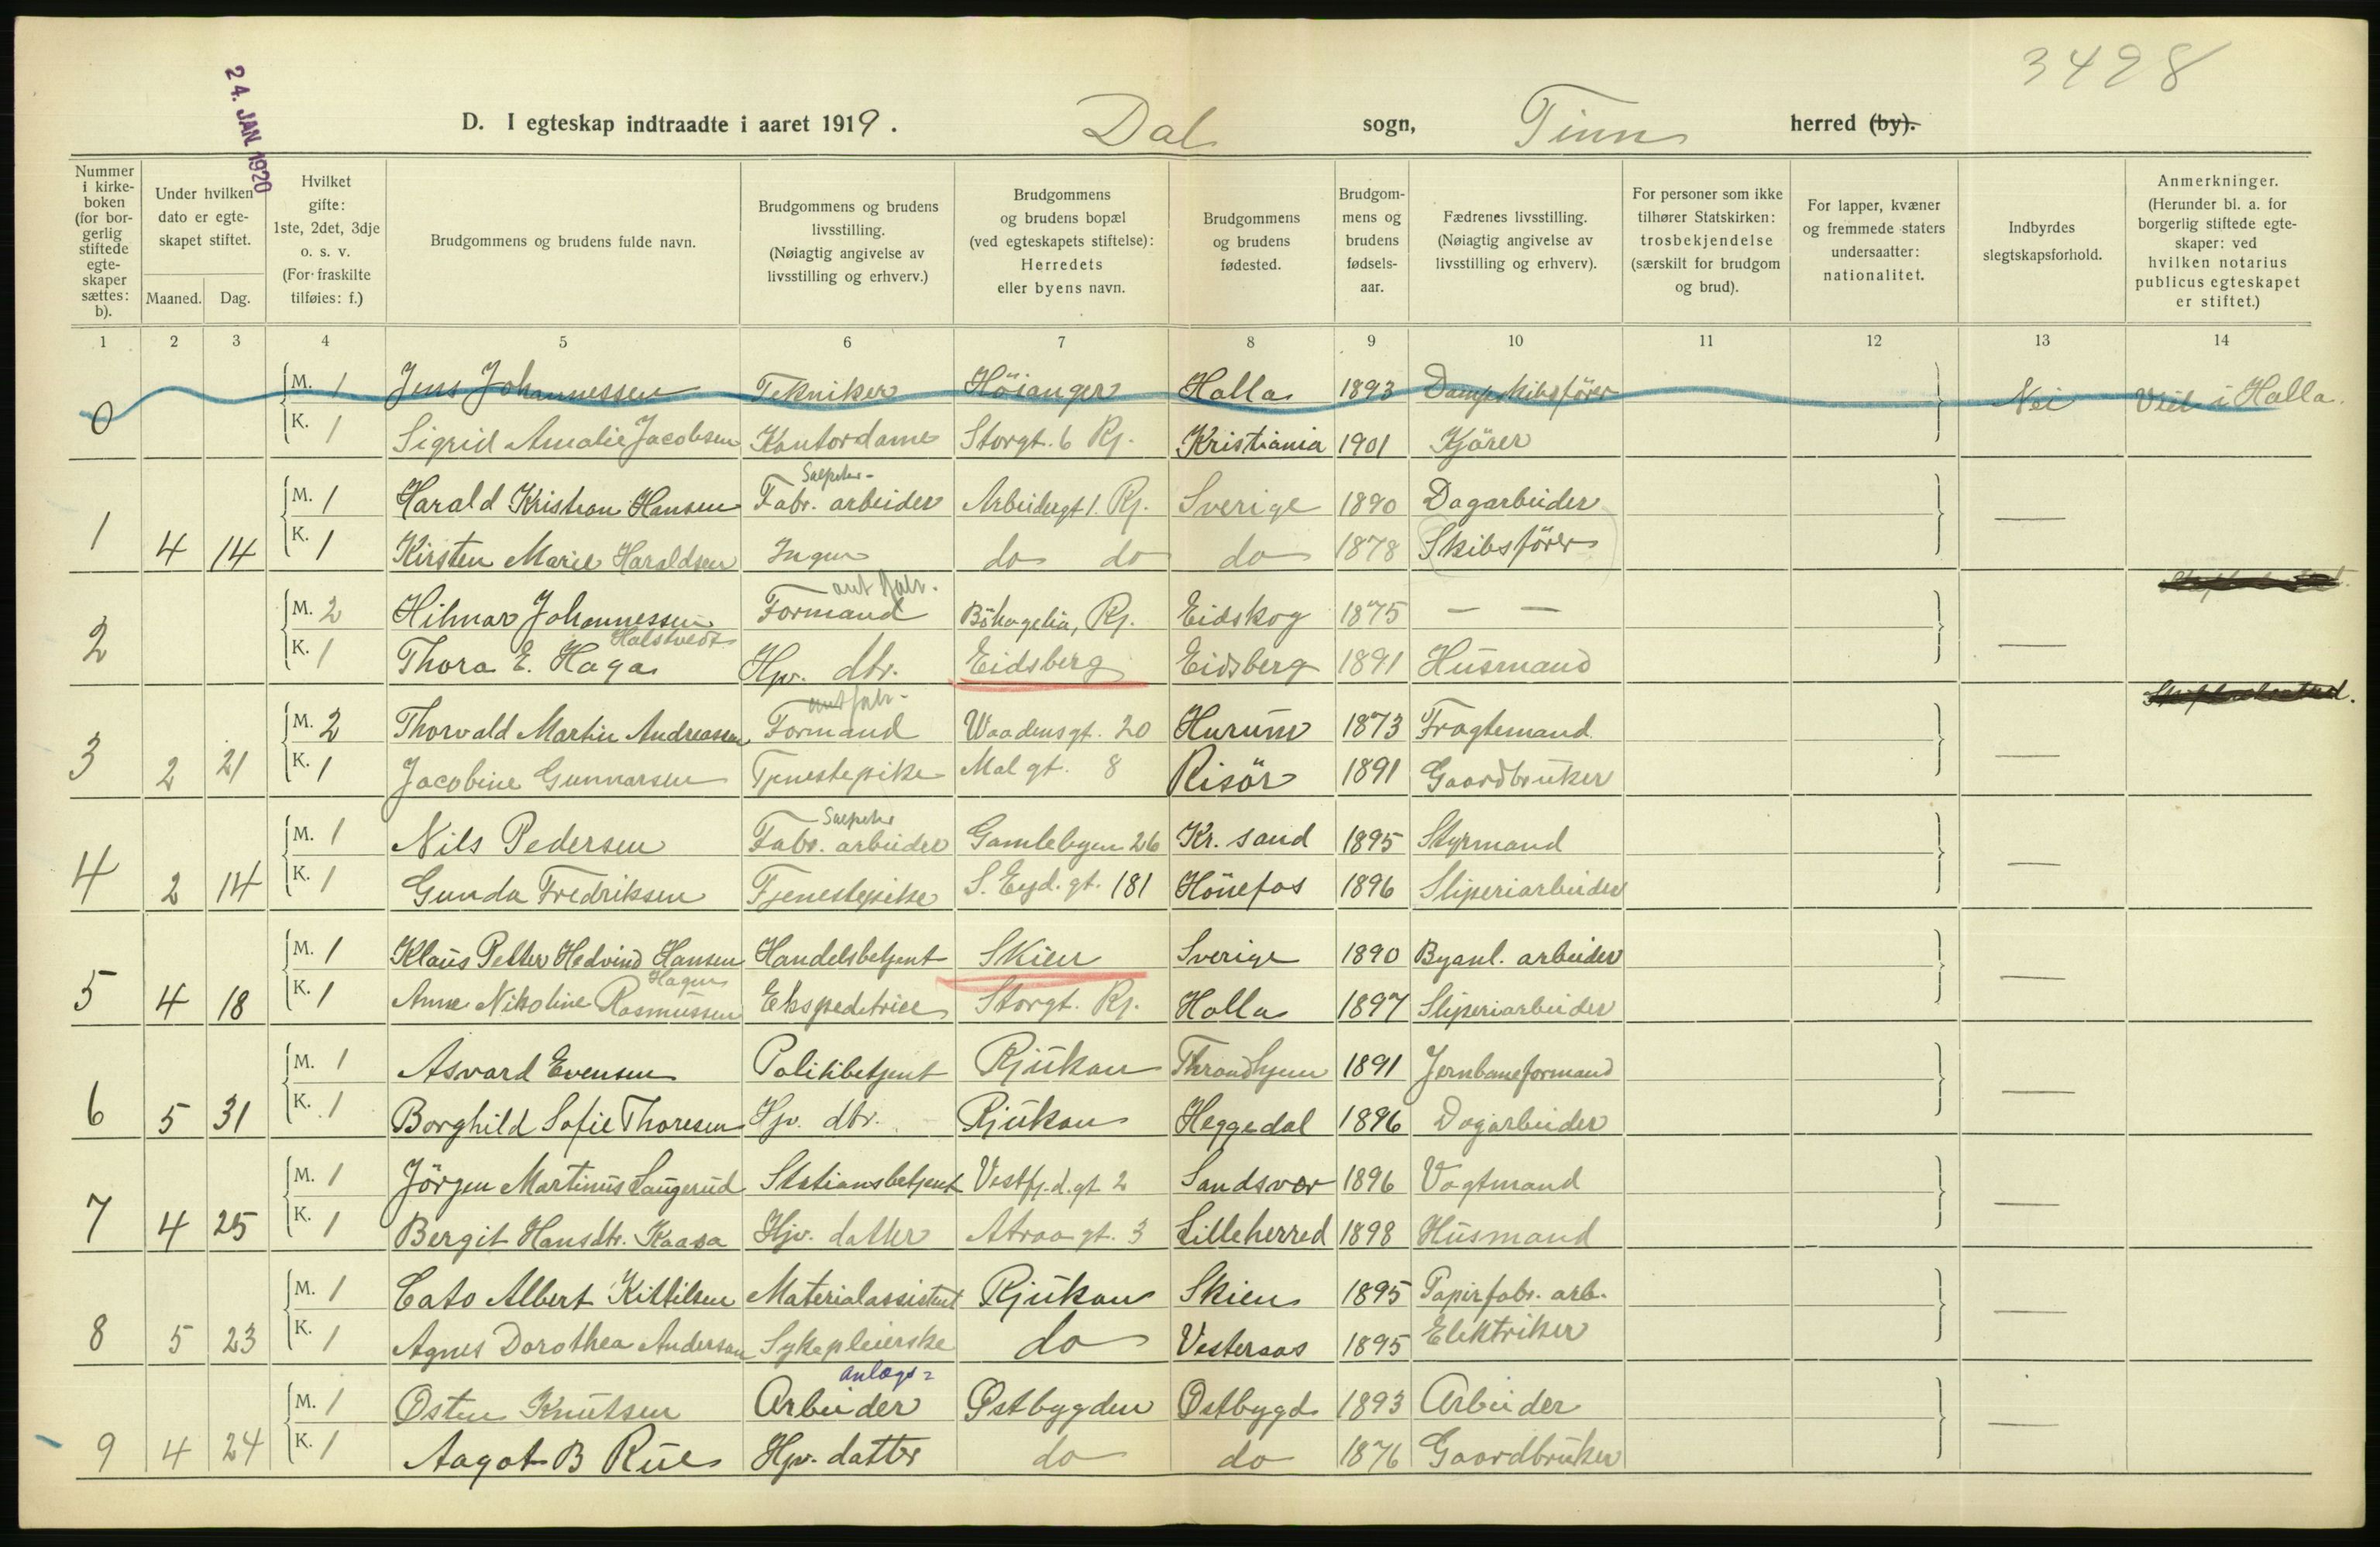 3428
24. JAN 1920
D. I egteskap indtraadte i aaret 1919. Dal sogn, Tinn herred (by).
Nummer i kirke-boken (for bor-gerlig stiftede egte-skaper sættes: b).
Under hvilken dato er egte-skapet stiftet.
Maaned. Dag.
Hvilket gifte: 1ste, 2det, 3dje o. s. v. (For fraskilte tilføies: f.)
Brudgommens og brudens fulde navn.
Brudgommens og brudens livsstilling. (Nøiagtig angivelse av livsstilling og erhverv.)
Brudgommens og brudens bopæl (ved egteskapets stiftelse): Herredets eller byens navn.
Brudgommens og brudens fødested.
Brudgom-mens og brudens fødsels-aar.
Fædrenes livsstilling. (Nøiagtig angivelse av livsstilling og erhverv).
For personer som ikke tilhører Statskirken: trosbekjendelse (særskilt for brudgom og brud).
For lapper, kvæner og fremmede staters undersaatter: nationalitet.
Indbyrdes slegtskapsforhold.
Anmerkninger. (Herunder bl. a. for borgerlig stiftede egte-skaper: ved hvilken notarius publicus egteskapet er stiftet.)
1 2 3 4 5 6 7 8 9 10 11 12 13 14
0 M. 1 Jens Johannessen Tekniker Höianger Holla 1893 Dampskibsförer Nei Viet i Holla.
K. 1 Sigrid Amalie Jacobsen Kontordame Storgt. 6 Rj. Kristiania 1901 Kjörer
Salpeter-
M. 1 Harald Kristian Hansen Fabr. arbeider Arbeidergt 1. Rj. Sverige 1890 Dagarbeider
1 4 14 K. 1 Kirsten Marie Haraldsen Ingen do do do 1878 Skibsförer
M. 2 Hilmar Johannessen Formand Böhagelia, Rj. Eidskog 1875 — —
Halstvedt
2 K. 1 Thora E. Haga Hjv. dtr. Eidsberg Eidsberg 1891 Husmand
M. 2 Thorvald Martin Andreassen Formand Waadensgt. 20 Hurum 1873 Fragtemand
3 2 21 K. 1 Jacobine Gunnarsen Tjenestepike Mælgt. 8 Risör 1891 Gaardbruker
Salpeter
M. 1 Nils Pedersen Fabr. arbeider Gamlebyen 26 Kr. sand 1895 Styrmand
4 2 14 K. 1 Gunda Fredriksen Tjenestepike S. Eyd. gt. 181 Hönefos 1896 Sliperiarbeider
M. 1 Klaus Petter Hedvind Hansen Handelsbetjent Skien Sverige 1890 Byanl. arbeider
Hagen
5 4 18 K. 1 Anne Nikoline Rasmussen Ekspeditrice Storgt. Rj. Holla 1897 Sliperiarbeider
M. 1 Asvard Evensen Politibetjent Rjukan Throndhjem 1891 Jernbaneformand
6 5 31 K. 1 Borghild Sofie Thoresen Hjv. dtr. Rjukan Heggedal 1896 Dagarbeider
M. 1 Jörgen Martinus Laugerud Stationsbetjent Vestfj.d.gt 2 Sandsvær 1896 Vagtmand
7 4 25 K. 1 Bergit Hansdtr. Kaasa Hjv. datter Atraagt. 3 Lilleherred 1898 Husmand
M. 1 Cato Albert Kittilsen Materialassistent Rjukan Skien 1895 Papirfabr. arb.
8 5 23 K. 1 Agnes Dorothea Anderson Sykepleierske do Vesteraas 1895 Elektriker
anlægs=
M. 1 Osten Knutsen Arbeider Østbygden Ostbygd 1893 Arbeider
9 4 24 K. 1 Aagot B Rue Hjv. datter do do 1876 Gaardbruker